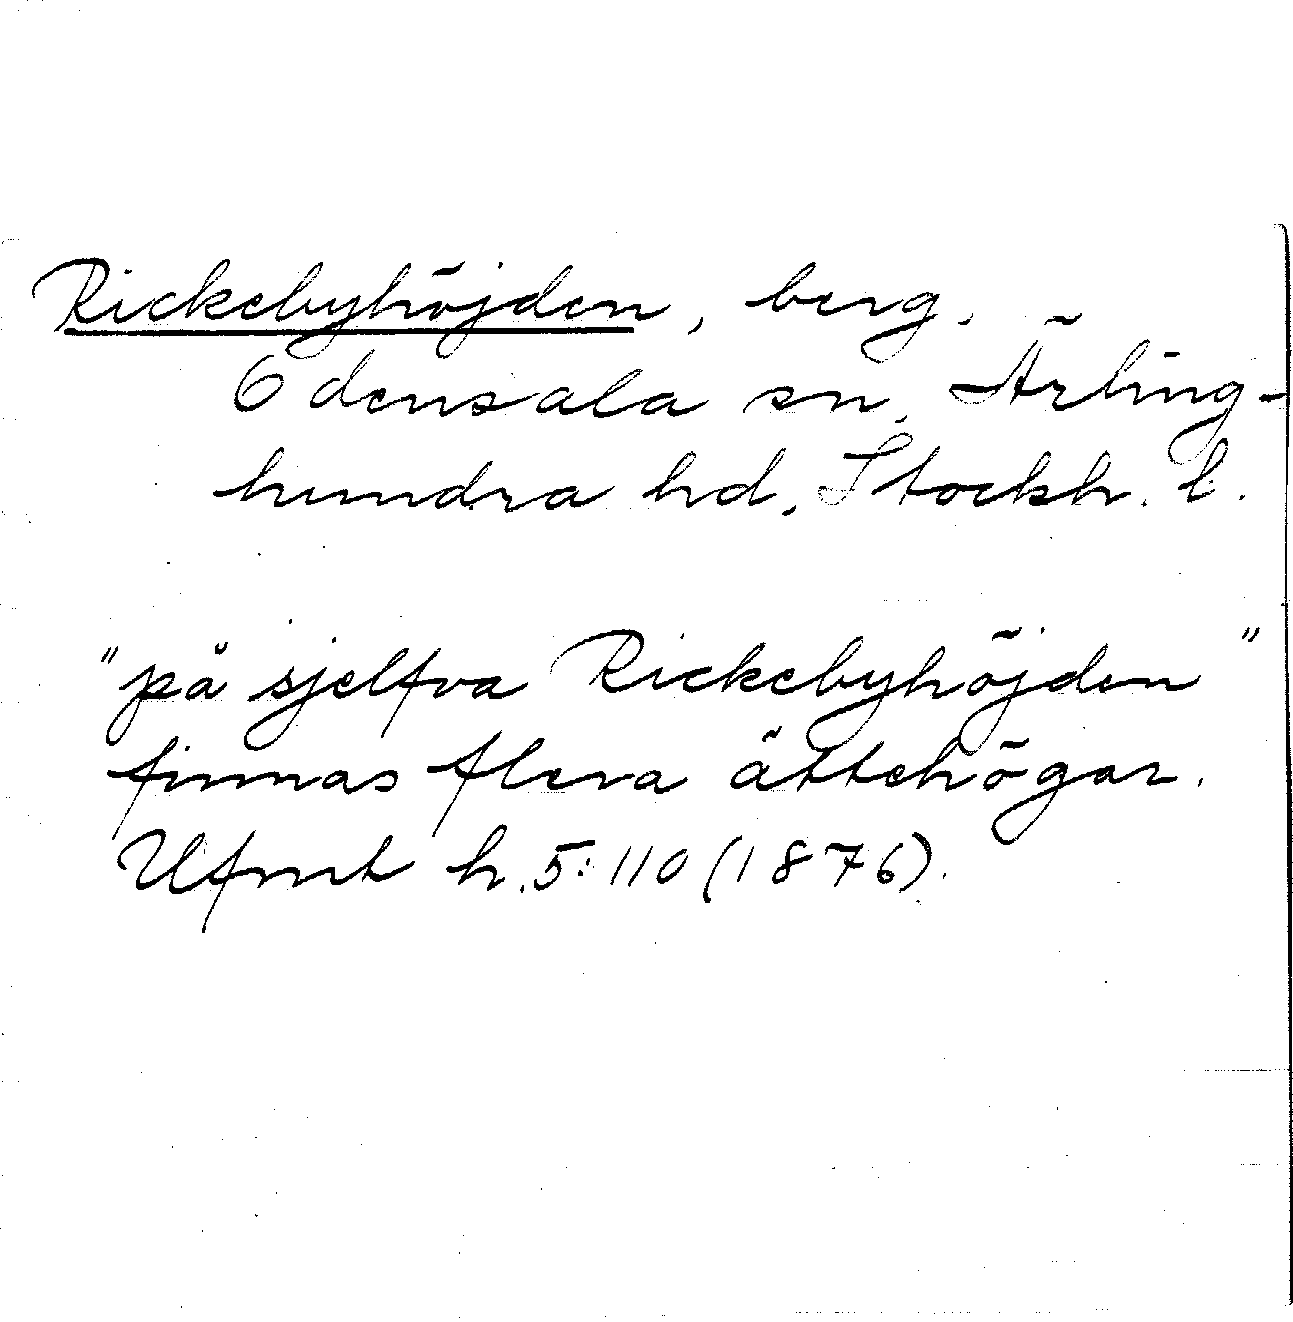 Rickebyhöjden, berg.
Odensala sn, Ärling-
hundra hd, Stockh. l.
"på sjelfva Rickebyhöjden"
finnas flera ättehögar.
Ufmt h.5:110 (1876).